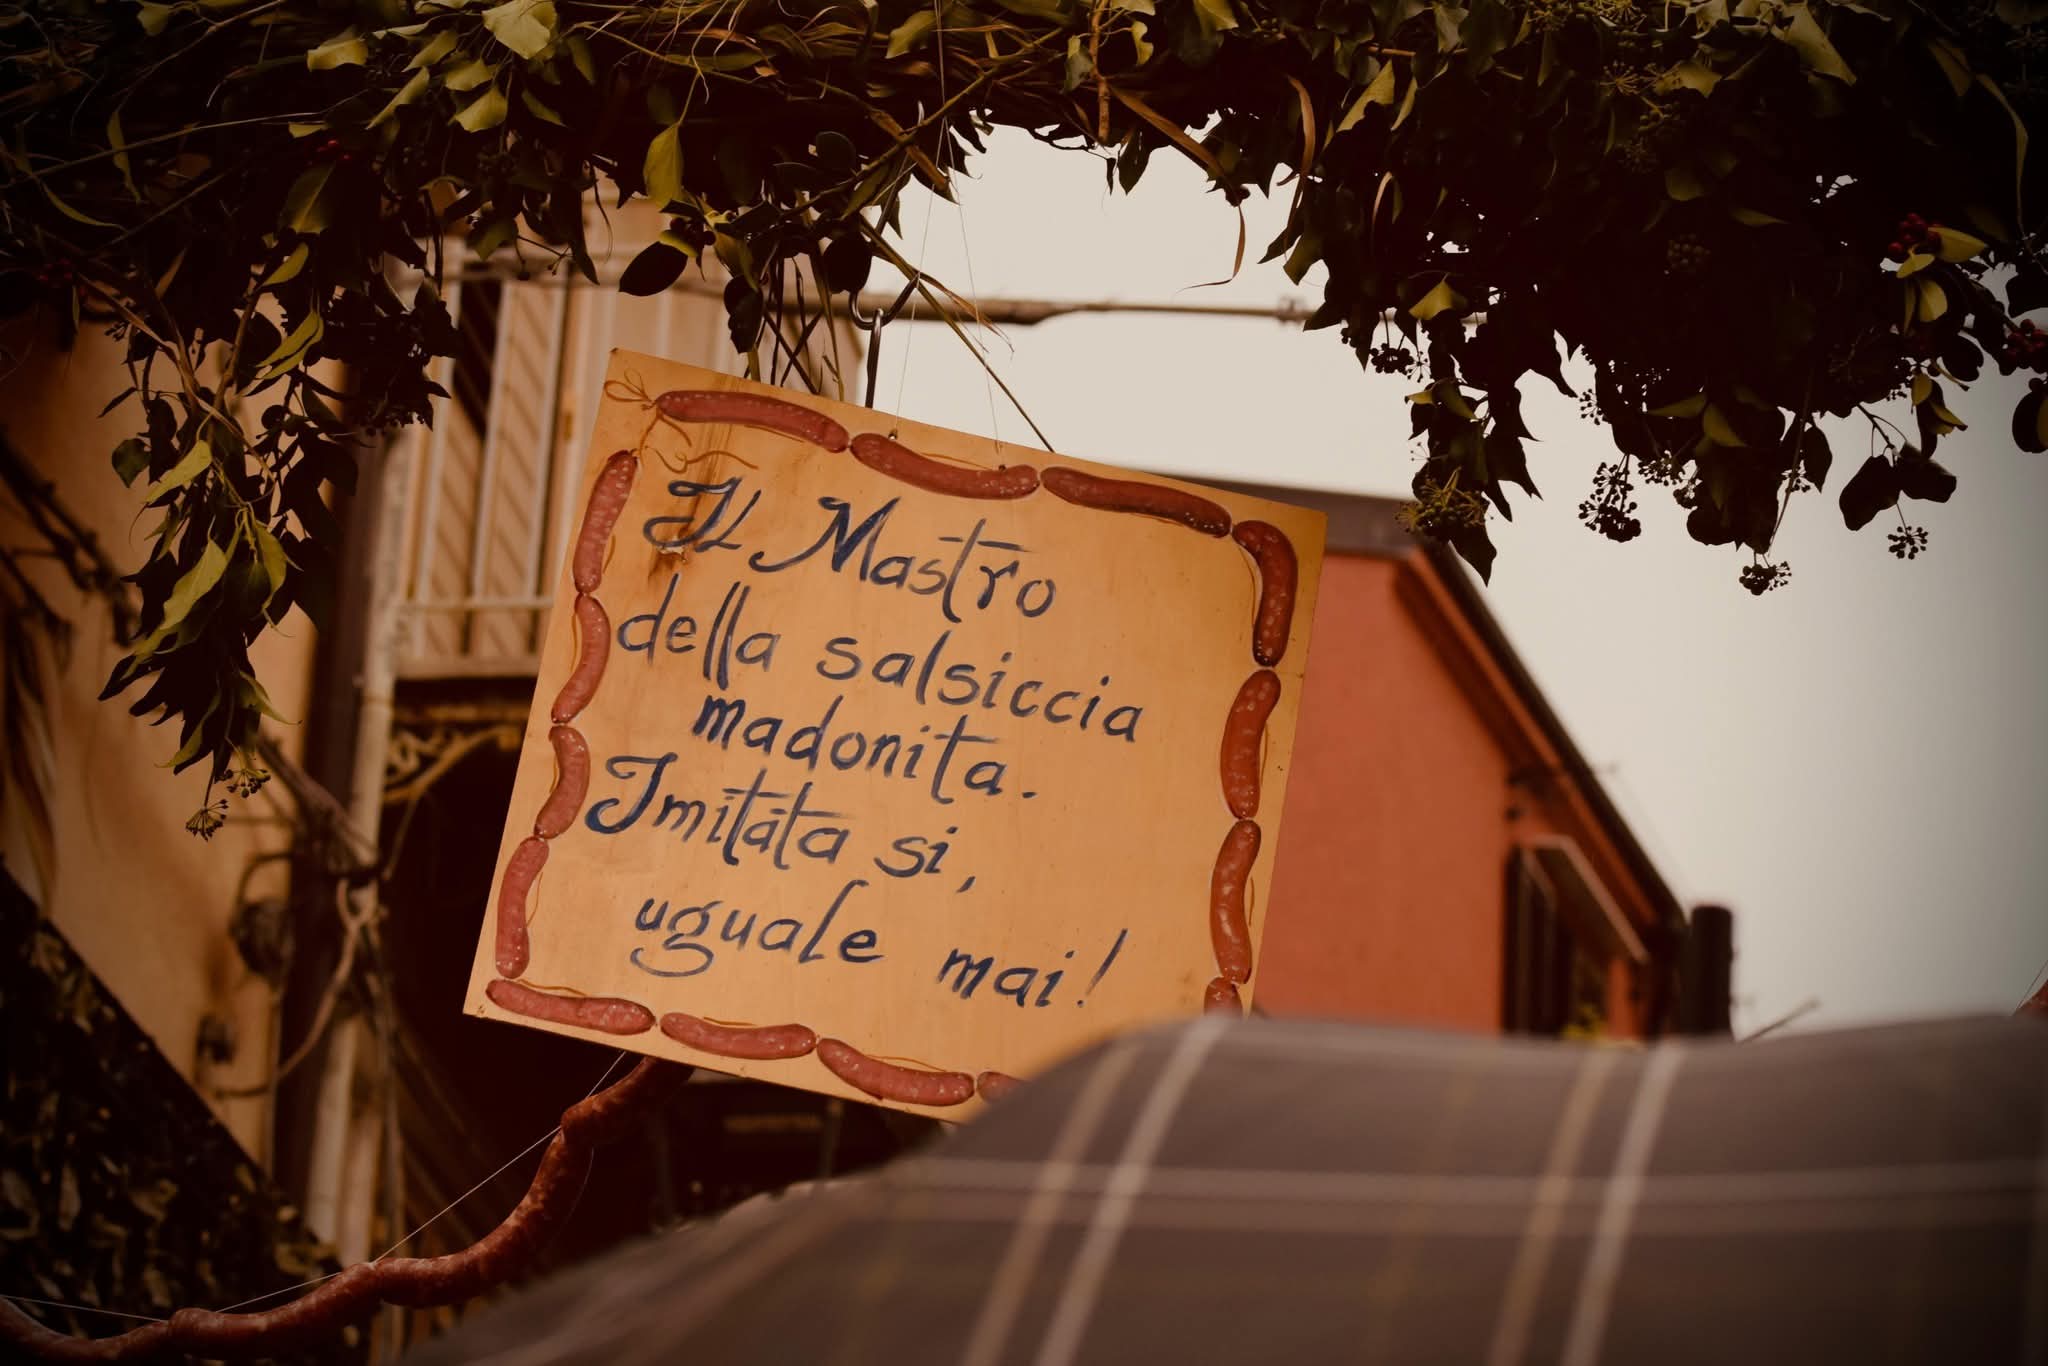 IL Mastro
della salsiccia
madonita.
Imitata si,
uguale mai!